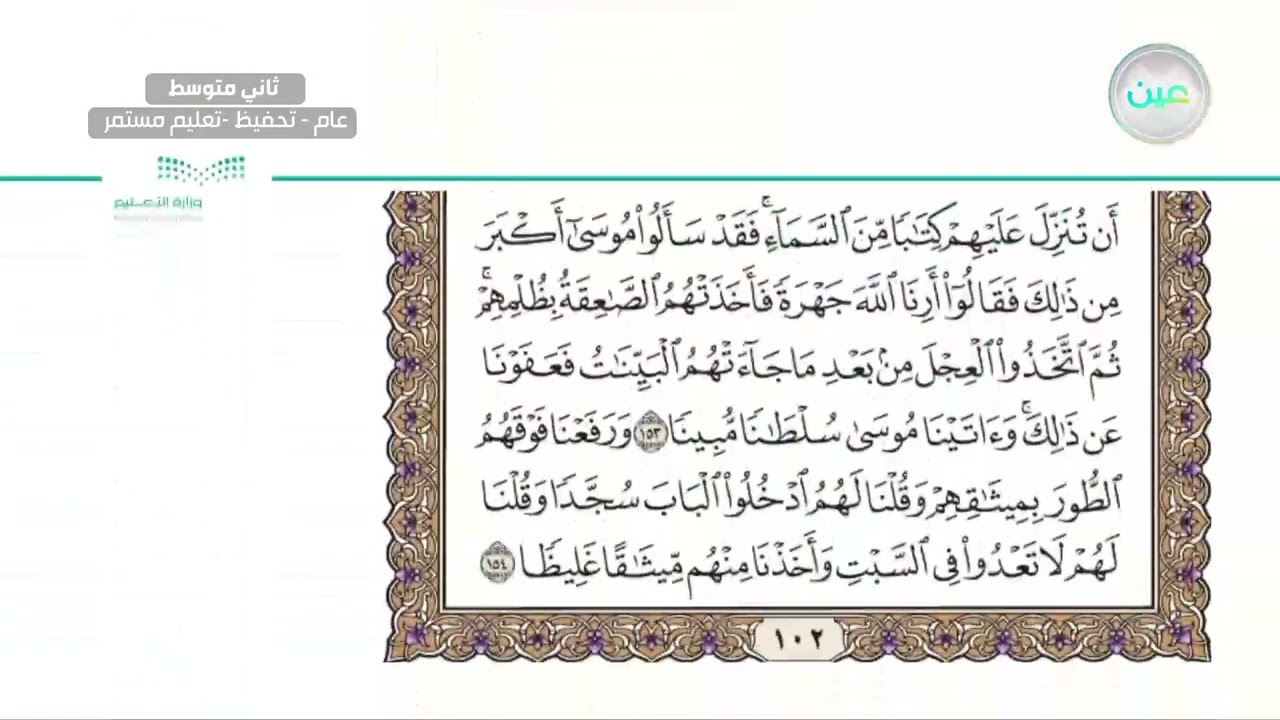 ثاني متوسط
عام - تحفيظ -تعليم مستمر
عين
وزارة التعـــليم
أَن تُنَزِّلَ عَلَيْهِمْ كِتَٰبًا مِّنَ ٱلسَّمَآءِۚ فَقَدْ سَأَلُوا۟ مُوسَىٰٓ أَكْبَرَ
مِن ذَٰلِكَ فَقَالُوٓا۟ أَرِنَا ٱللَّهَ جَهْرَةً فَأَخَذَتْهُمُ ٱلصَّٰعِقَةُ بِظُلْمِهِمْۚ
ثُمَّ ٱتَّخَذُوا۟ ٱلْعِجْلَ مِنۢ بَعْدِ مَا جَآءَتْهُمُ ٱلْبَيِّنَٰتُ فَعَفَوْنَا
عَن ذَٰلِكَۚ وَءَاتَيْنَا مُوسَىٰ سُلْطَٰنًا مُّبِينًا ١٥٣ وَرَفَعْنَا فَوْقَهُمُ
ٱلطُّورَ بِمِيثَٰقِهِمْ وَقُلْنَا لَهُمُ ٱدْخُلُوا۟ ٱلْبَابَ سُجَّدًا وَقُلْنَا
لَهُمْ لَا تَعْدُوا۟ فِى ٱلسَّبْتِ وَأَخَذْنَا مِنْهُم مِّيثَٰقًا غَلِيظًا ١٥٤
١٠٢